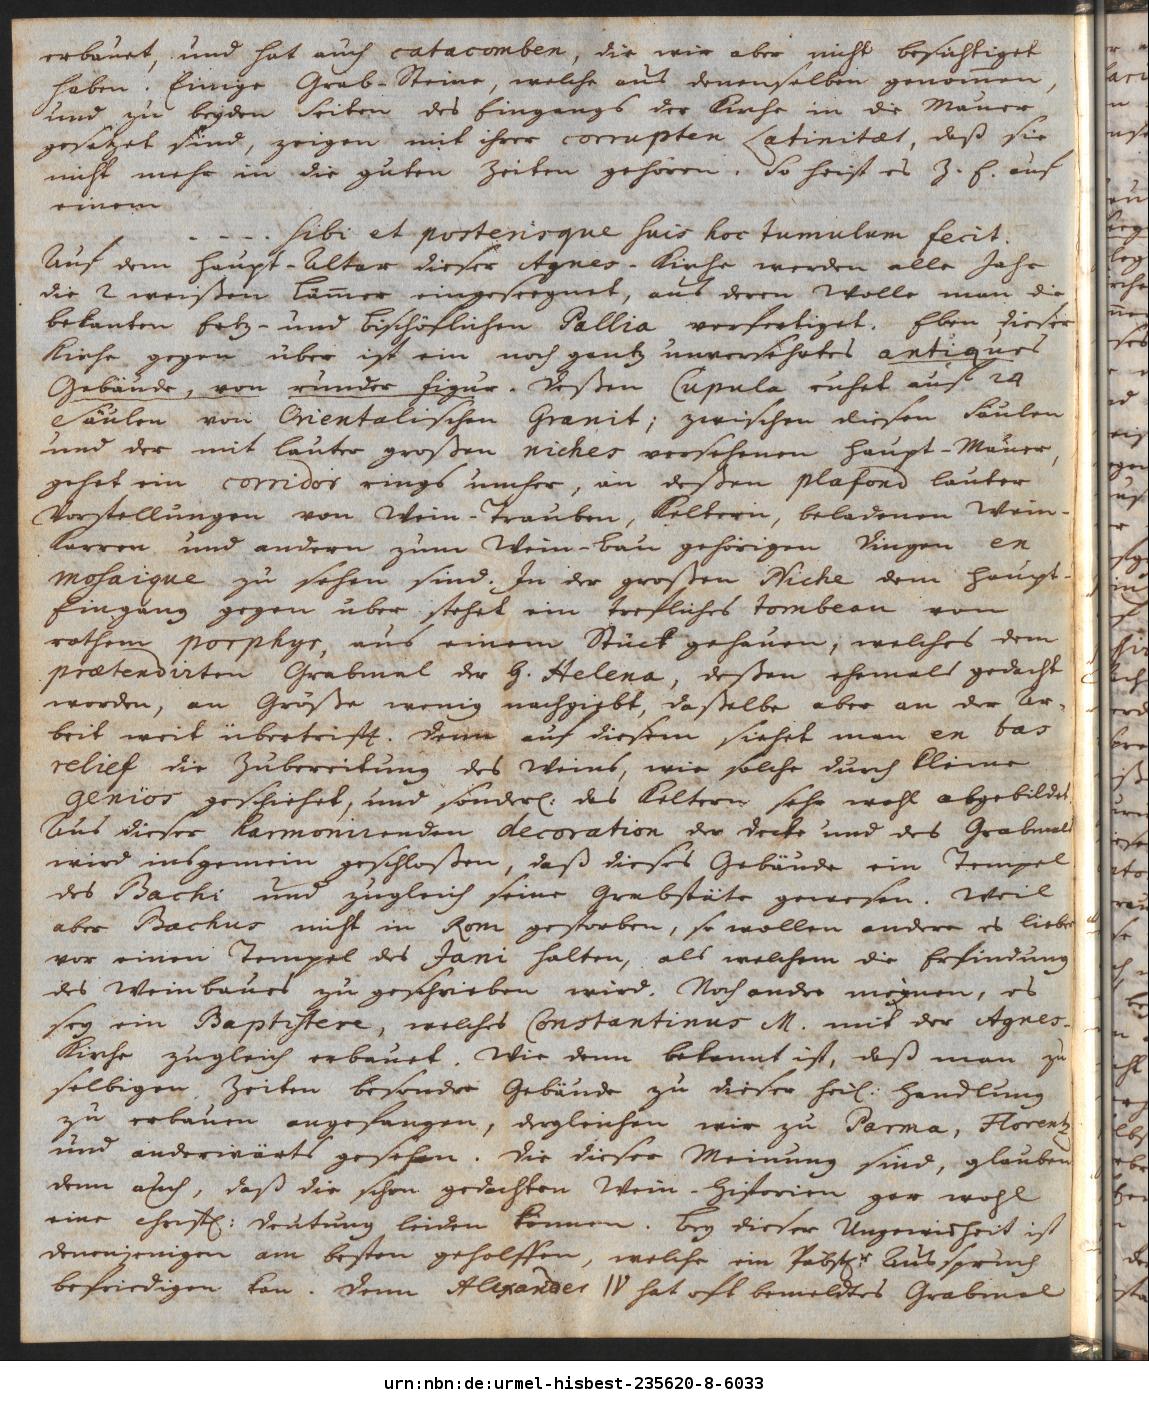 erbauet, und hat auch catacomben, die wir aber nicht besichtiget
haben. Einige Grab-Steine, welche aus denenselben genom̄en,
und zu beyden Seiten des Eingangs der Kirche in die Mauer
gesetzet sind, zeigen mit ihrer corrupten Latinitæt, daß sie
nicht mehr in die guten Zeiten gehören. So heist es Z. E. auf
einem
- - - - sibi et posterisque suis hoc tumulum fecit.
Auf dem Haupt-Altar dieser Agnes-Kirche werden alle Jahr
die 2 weißen Läm̄er eingeseegnet, aus deren Wolle man die
bekanten Ertz- und Bischöflichen Pallia verfertiget. Eben dieser
Kirche gegen über ist ein noch gantz unversehrtes antiques
Gebäude, von runder Figur. Deßen Cupula ruhet auf 24
Säulen von Orientalischen Granit; zwischen diesen Säulen
und der mit lauter großen niches versehenen Haupt-Mauer,
gehet ein corridor rings umher, an deßen plafond lauter
Vorstellungen von Wein-Trauben, Keltern, beladenen Wein-
Karren und andern zum Wein-bau gehörigen Dingen en
mosaique zu sehen sind. In der großen Niche dem Haupt-
Eingang gegen über stehet ein trefliches tombeau von
rothem porphyr, aus einem Stück gehauen, welches dem
prætendirten Grabmal der H. Helena, deßen ehemals gedacht
worden, an Größe wenig nachgiebt, daßelbe aber an der Ar-
beit weit übertrifft. Denn auf diesem siehet man en bas
relief die Zubereitung des Weins, wie solche durch kleine
Genios geschiehet, und sonderl: das Keltern sehr wohl abgebildet.
Aus dieser harmonirenden decoration der Decke und des Grabmals
wird insgemein geschloßen, daß dieses Gebäude ein Tempel
des Bachi und zugleich seine Grabstäte gewesen. Weil
aber Bachus nicht in Rom gestorben, so wollen andere es lieber
vor einen Tempel des Jani halten, als welchem die Erfindung
des Weinbaues zugeschrieben wird. Noch andre meynen, es
sey ein Baptistere, welches Constantinus M. mit der Agnes-
Kirche zugleich erbauet. Wie denn bekannt ist, daß man zu
selbigen Zeiten besondre Gebäude zu dieser heil: Handlung
zu erbauen angefangen, dergleichen wir zu Parma, Florentz
und anderwärts gesehen. Die dieser Meinung sind, glauben
denn auch, daß die schon gedachten Wein-Historien gar wohl
eine christl: Deutung leiden können. Bey dieser Ungewisheit ist
denenjenigen am besten geholffen, welche ein Päbstl.r Ausspruch
befriedigen kan. Denn Alexander IV hat oft bemeldtes Grabmal
urn:nbn:de:urmel-hisbest-235620-8-6033